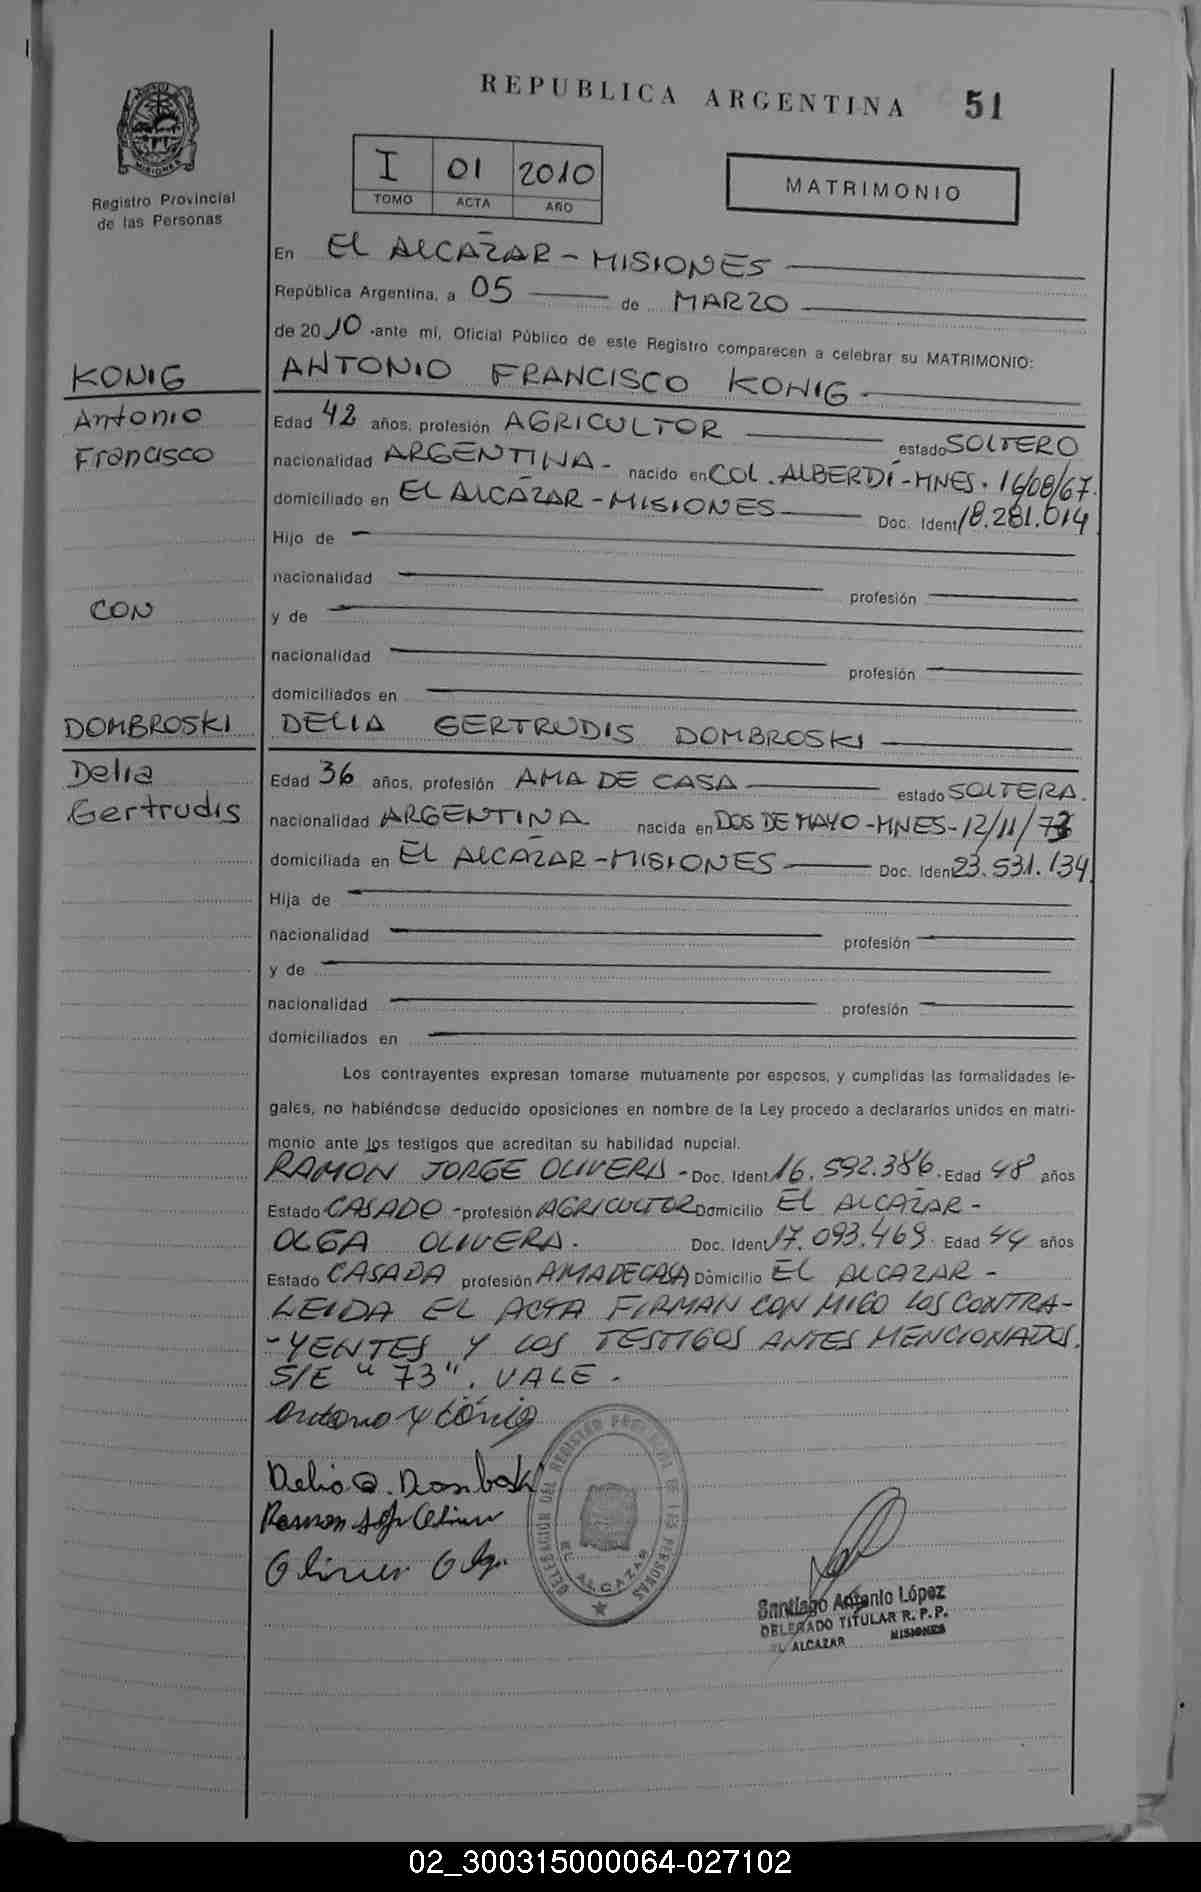 REPUBLICA ARGENTINA 51
MISIONES
Registro Provincial
de las Personas
I 01 2010
TOMO ACTA AÑO
MATRIMONIO
En EL ALCAZAR - MISIONES
República Argentina, a 05 de MARZO
de 2010 -ante mí, Oficial Público de este Registro comparecen a celebrar su MATRIMONIO:
KONIG
ANTONIO FRANCISCO KONIG
Antonio
Edad 42 años, profesión AGRICULTOR estado SOLTERO
Francisco
nacionalidad ARGENTINA- nacido en COL. ALBERDÍ-MNES. 16/08/67.
domiciliado en EL ALCAZAR - MISIONES Doc. Ident. 18.281.014
Hijo de
nacionalidad profesión
CON
y de
nacionalidad profesión
domiciliados en
DOMBROSKI
DELIA GERTRUDIS DOMBROSKI
Delia
Edad 36 años, profesión AMA DE CASA estado SOLTERA.
Gertrudis
nacionalidad ARGENTINA nacida en DOS DE MAYO-MNES-12/11/73
domiciliada en EL ALCAZAR-MISIONES Doc. Iden 23.531.134.
Hija de
nacionalidad profesión
y de
nacionalidad profesión
domiciliados en
Los contrayentes expresan tomarse mutuamente por esposos, y cumplidas las formalidades le-
gales, no habiéndose deducido oposiciones en nombre de la Ley procedo a declararlos unidos en matri-
monio ante los testigos que acreditan su habilidad nupcial.
RAMON JORGE OLIVERA - Doc. Ident. 16.592.386. Edad 48 años
Estado CASADO - profesión AGRICULTOR Domicilio EL ALCAZAR-
OLGA OLIVERA. Doc. Ident. 17.093.469. Edad 44 años
Estado CASADA profesión AMADECASA Domicilio EL ALCAZAR -
LEIDA EL ACTA FIRMAN CON MIGO LOS CONTRA-
-YENTES Y LOS TESTIGOS ANTES MENCIONADOS.
S/E "73". VALE.
DELEGACION DEL REGISTRO PROVINCIAL DE LAS PERSONAS
EL ALCAZAR
Santiago Antonio López
DELEGADO TITULAR R. P. P.
EL ALCAZAR MISIONES
02_300315000064-027102